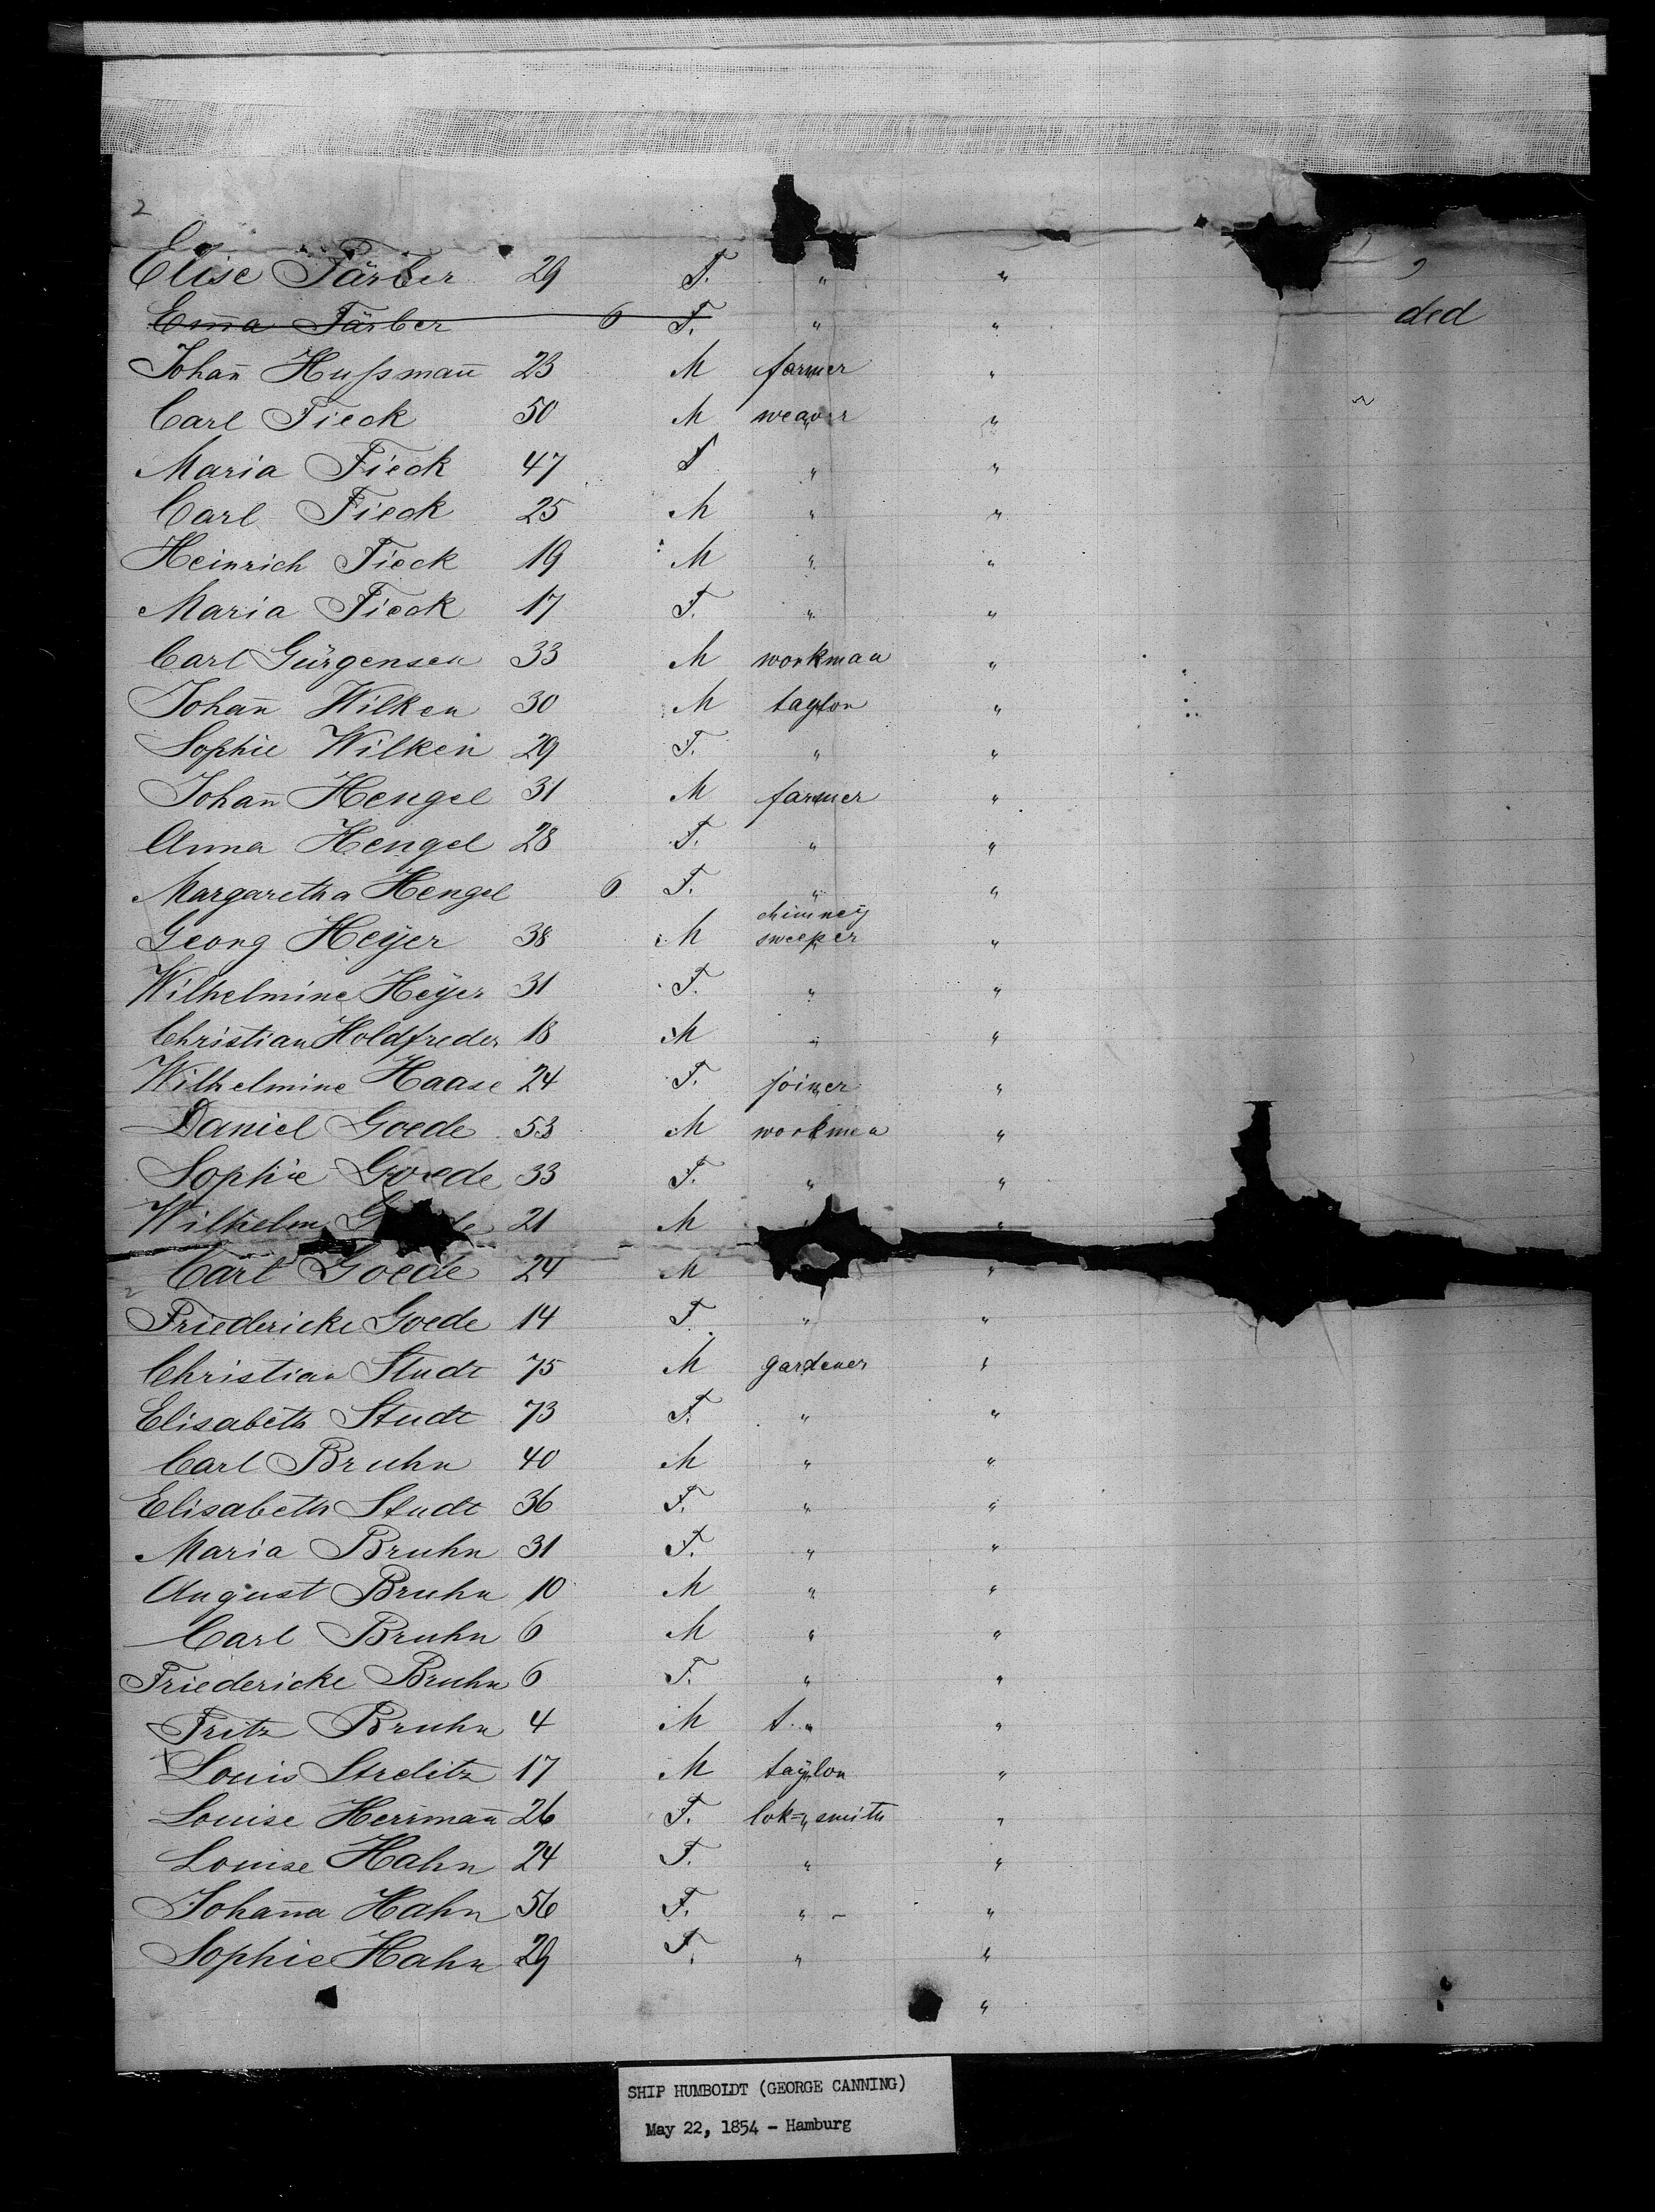 2
Elise Färber 29 F. " "
Em̄a Färber 6 F. " " ded
Johan̄ Hußman̄ 23 M farmer "
Carl Fieck 50 M weaver "
Maria Fieck 47 F " "
Carl Fieck 25 M " "
Heinrich Fieck 19 M " "
Maria Fieck 17 F. " "
Carl Gürgensen 33 M workman "
Johan̄ Wilken 30 M taylor "
Sophie Wilken 29 F. " "
Johan̄ Hengel 31 M farmer "
Anna Hengel 28 F. " "
Margaretha Hengel 6 F. " "
chimney
Georg Heÿer 38 M sweeper "
Wilhelmine Heÿer 31 F. " "
Christian Holdfreder 18 M " "
Wilhelmine Haase 24 F. joiner "
Daniel Goede 53 M workman "
Sophie Goede 33 F. " "
Wilhelm 21 M "
Carl Goede 24 M "
Friedericke Goede 14 F " "
Christian Studt 75 M gardener "
Elisabeth Studt 73 F. " "
Carl Bruhn 40 M " "
Elisabeth Studt 36 F. " "
Maria Bruhn 31 F. " "
August Bruhn 10 M " "
Carl Bruhn 6 M " "
Friedericke Bruhn 6 F. " "
Fritz Bruhn 4 M " "
x Louis Strelitz 17 M taÿlor "
Louise Herrman̄ 26 F. lok=smith "
Louise Hahn 24 F. " "
Johan̄a Hahn 56 F. " "
Sophie Hahn 29 F. " "
"
SHIP HUMBOLDT (GEORGE CANNING)
May 22, 1854 - Hamburg